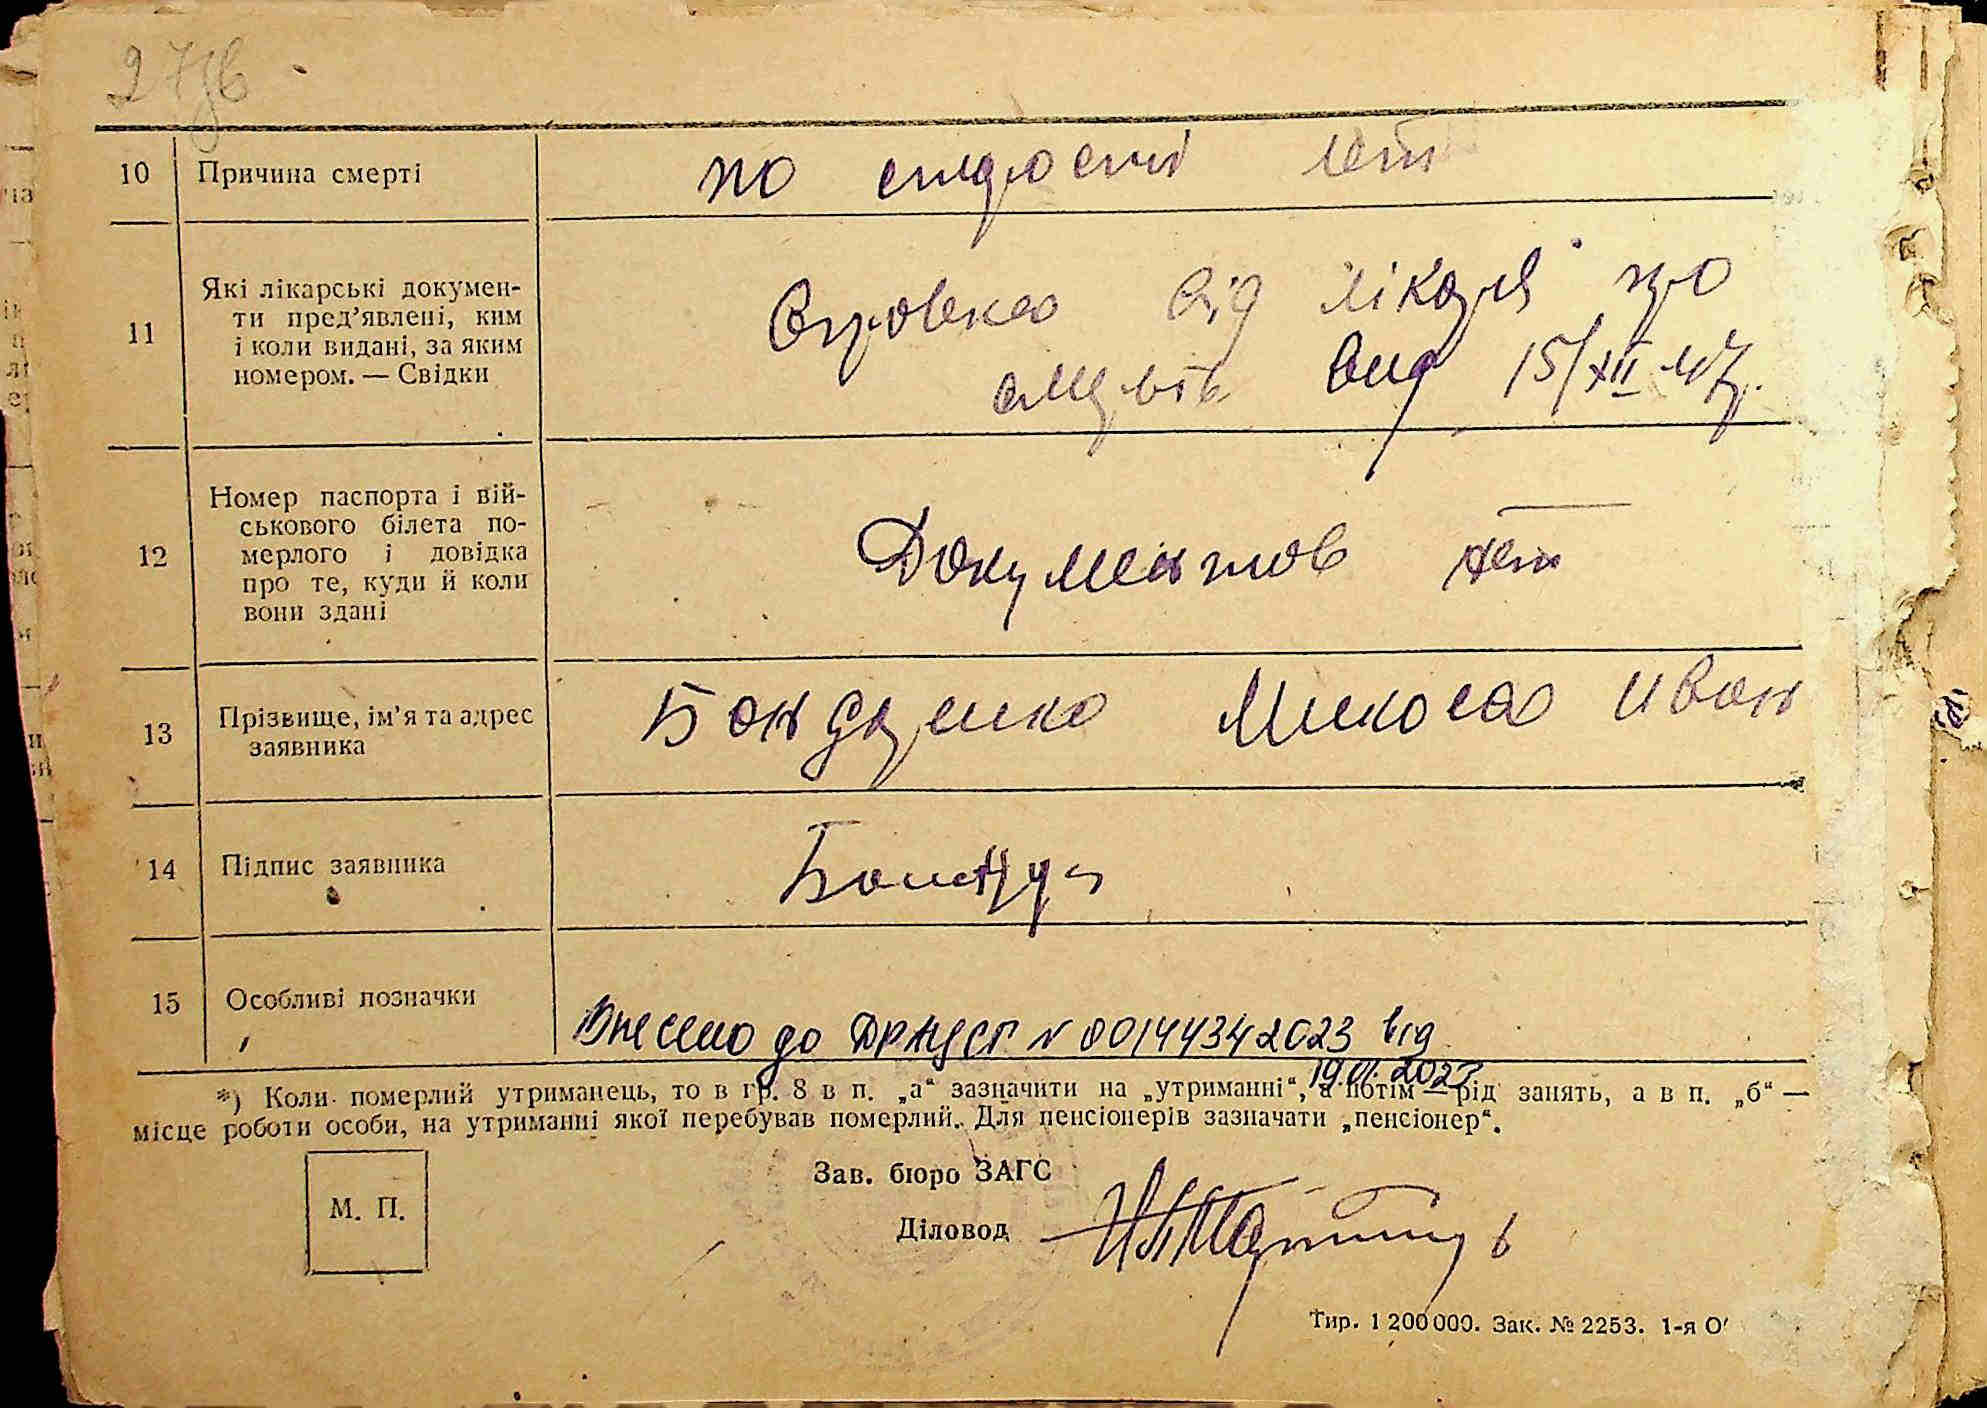 10 Причина смерті
по старости лет
11 Які лікарські докумен-
ти пред'явлені, ким
і коли видані, за яким
номером. — Свідки
Справка від лікаря про
смерть вид 15/XII 47г.
12 Номер паспорта і вій-
ськового білета по-
мерлого і довідка
про те, куди й коли
вони здані
Документов нет
13 Прізвище, ім'я та адрес
заявника
Бондаренко Микола Иван
14 Підпис заявника
15 Особливі позначки
Внесено до ДРАЦСГ N 00144342023 від
19.01.2023
*) Коли померлий утриманець, то в гр. 8 в п. „а“ зазначити на „утриманні“, а потім — рід занять, а в п. „б“ —
місце роботи особи, на утриманні якої перебував померлий. Для пенсіонерів зазначати „пенсіонер“.
М. П.
Зав. бюро ЗАГС
Діловод
Тир. 1 200 000. Зак. № 2253. 1-я О